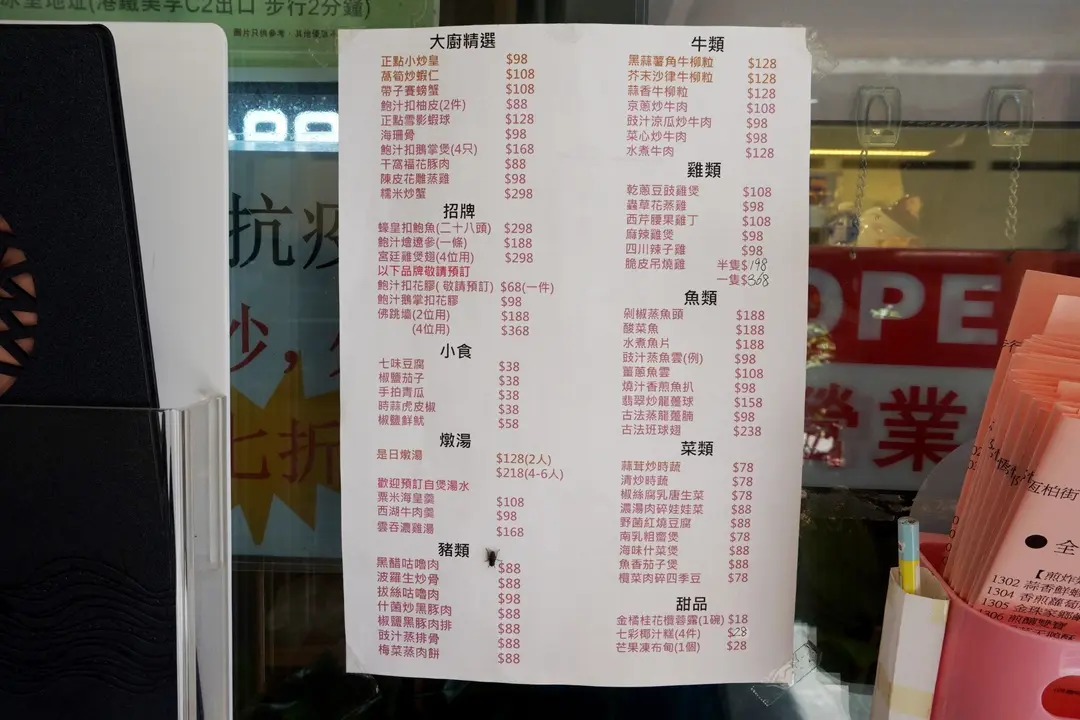 址(港鐵美孚C2出口 步行2分鐘)
圖片只供參考，其他優惠不
大廚精選
正點小炒皇 $98
萵筍炒蝦仁 $108
帶子賽螃蟹 $108
鮑汁扣柚皮(2件) $88
正點雪影蝦球 $128
海珊骨 $98
鮑汁扣鵝掌煲(4只) $168
干窩福花豚肉 $88
陳皮花雕蒸雞 $98
糯米炒蟹 $298
招牌
蠔皇扣鮑魚(二十八頭) $298
鮑汁燴遼參(一條) $188
宮廷雞煲翅(4位用) $298
以下品牌敬請預訂
鮑汁扣花膠( 敬請預訂) $68(一件)
鮑汁鵝掌扣花膠 $98
佛跳墻(2位用) $188
(4位用) $368
小食
七味豆腐 $38
椒鹽茄子 $38
手拍青瓜 $38
時蒜虎皮椒 $38
椒鹽鮮魷 $58
燉湯
是日燉湯 $128(2人)
$218(4-6人)
歡迎預訂自煲湯水
粟米海皇羹 $108
西湖牛肉羹 $98
雲吞濃雞湯 $168
豬類
黑醋咕嚕肉 $88
波羅生炒骨 $88
拔絲咕嚕肉 $98
什菌炒黑豚肉 $88
椒鹽黑豚肉排 $88
豉汁蒸排骨 $88
梅菜蒸肉餅 $88
牛類
黑蒜薯角牛柳粒 $128
芥末沙律牛柳粒 $128
蒜香牛柳粒 $128
京蔥炒牛肉 $108
豉汁涼瓜炒牛肉 $98
菜心炒牛肉 $98
水煮牛肉 $128
雞類
乾蔥豆豉雞煲 $108
蟲草花蒸雞 $98
西芹腰果雞丁 $108
麻辣雞煲 $98
四川辣子雞 $98
脆皮吊燒雞 半隻$198
一隻$368
魚類
剁椒蒸魚頭 $188
酸菜魚 $188
水煮魚片 $188
豉汁蒸魚雲(例) $98
薑蔥魚雲 $108
燒汁香煎魚扒 $98
翡翠炒龍躉球 $158
古法蒸龍躉腩 $98
古法班球翅 $238
菜類
蒜茸炒時蔬 $78
清炒時蔬 $78
椒絲腐乳唐生菜 $78
濃湯肉碎娃娃菜 $88
野菌紅燒豆腐 $88
南乳粗齋煲 $78
海味什菜煲 $88
魚香茄子煲 $88
欖菜肉碎四季豆 $78
甜品
金橘桂花欖蓉露(1碗) $18
七彩椰汁糕(4件) $28
芒果凍布甸(1個) $28
抗疫
炒，
七折
OPE
營業
百柏街
全
【煎炸
1302 蒜香鮮蝦
1304 香煎蘿蔔
1305 金珠家鄉
1306 煎釀雙寶